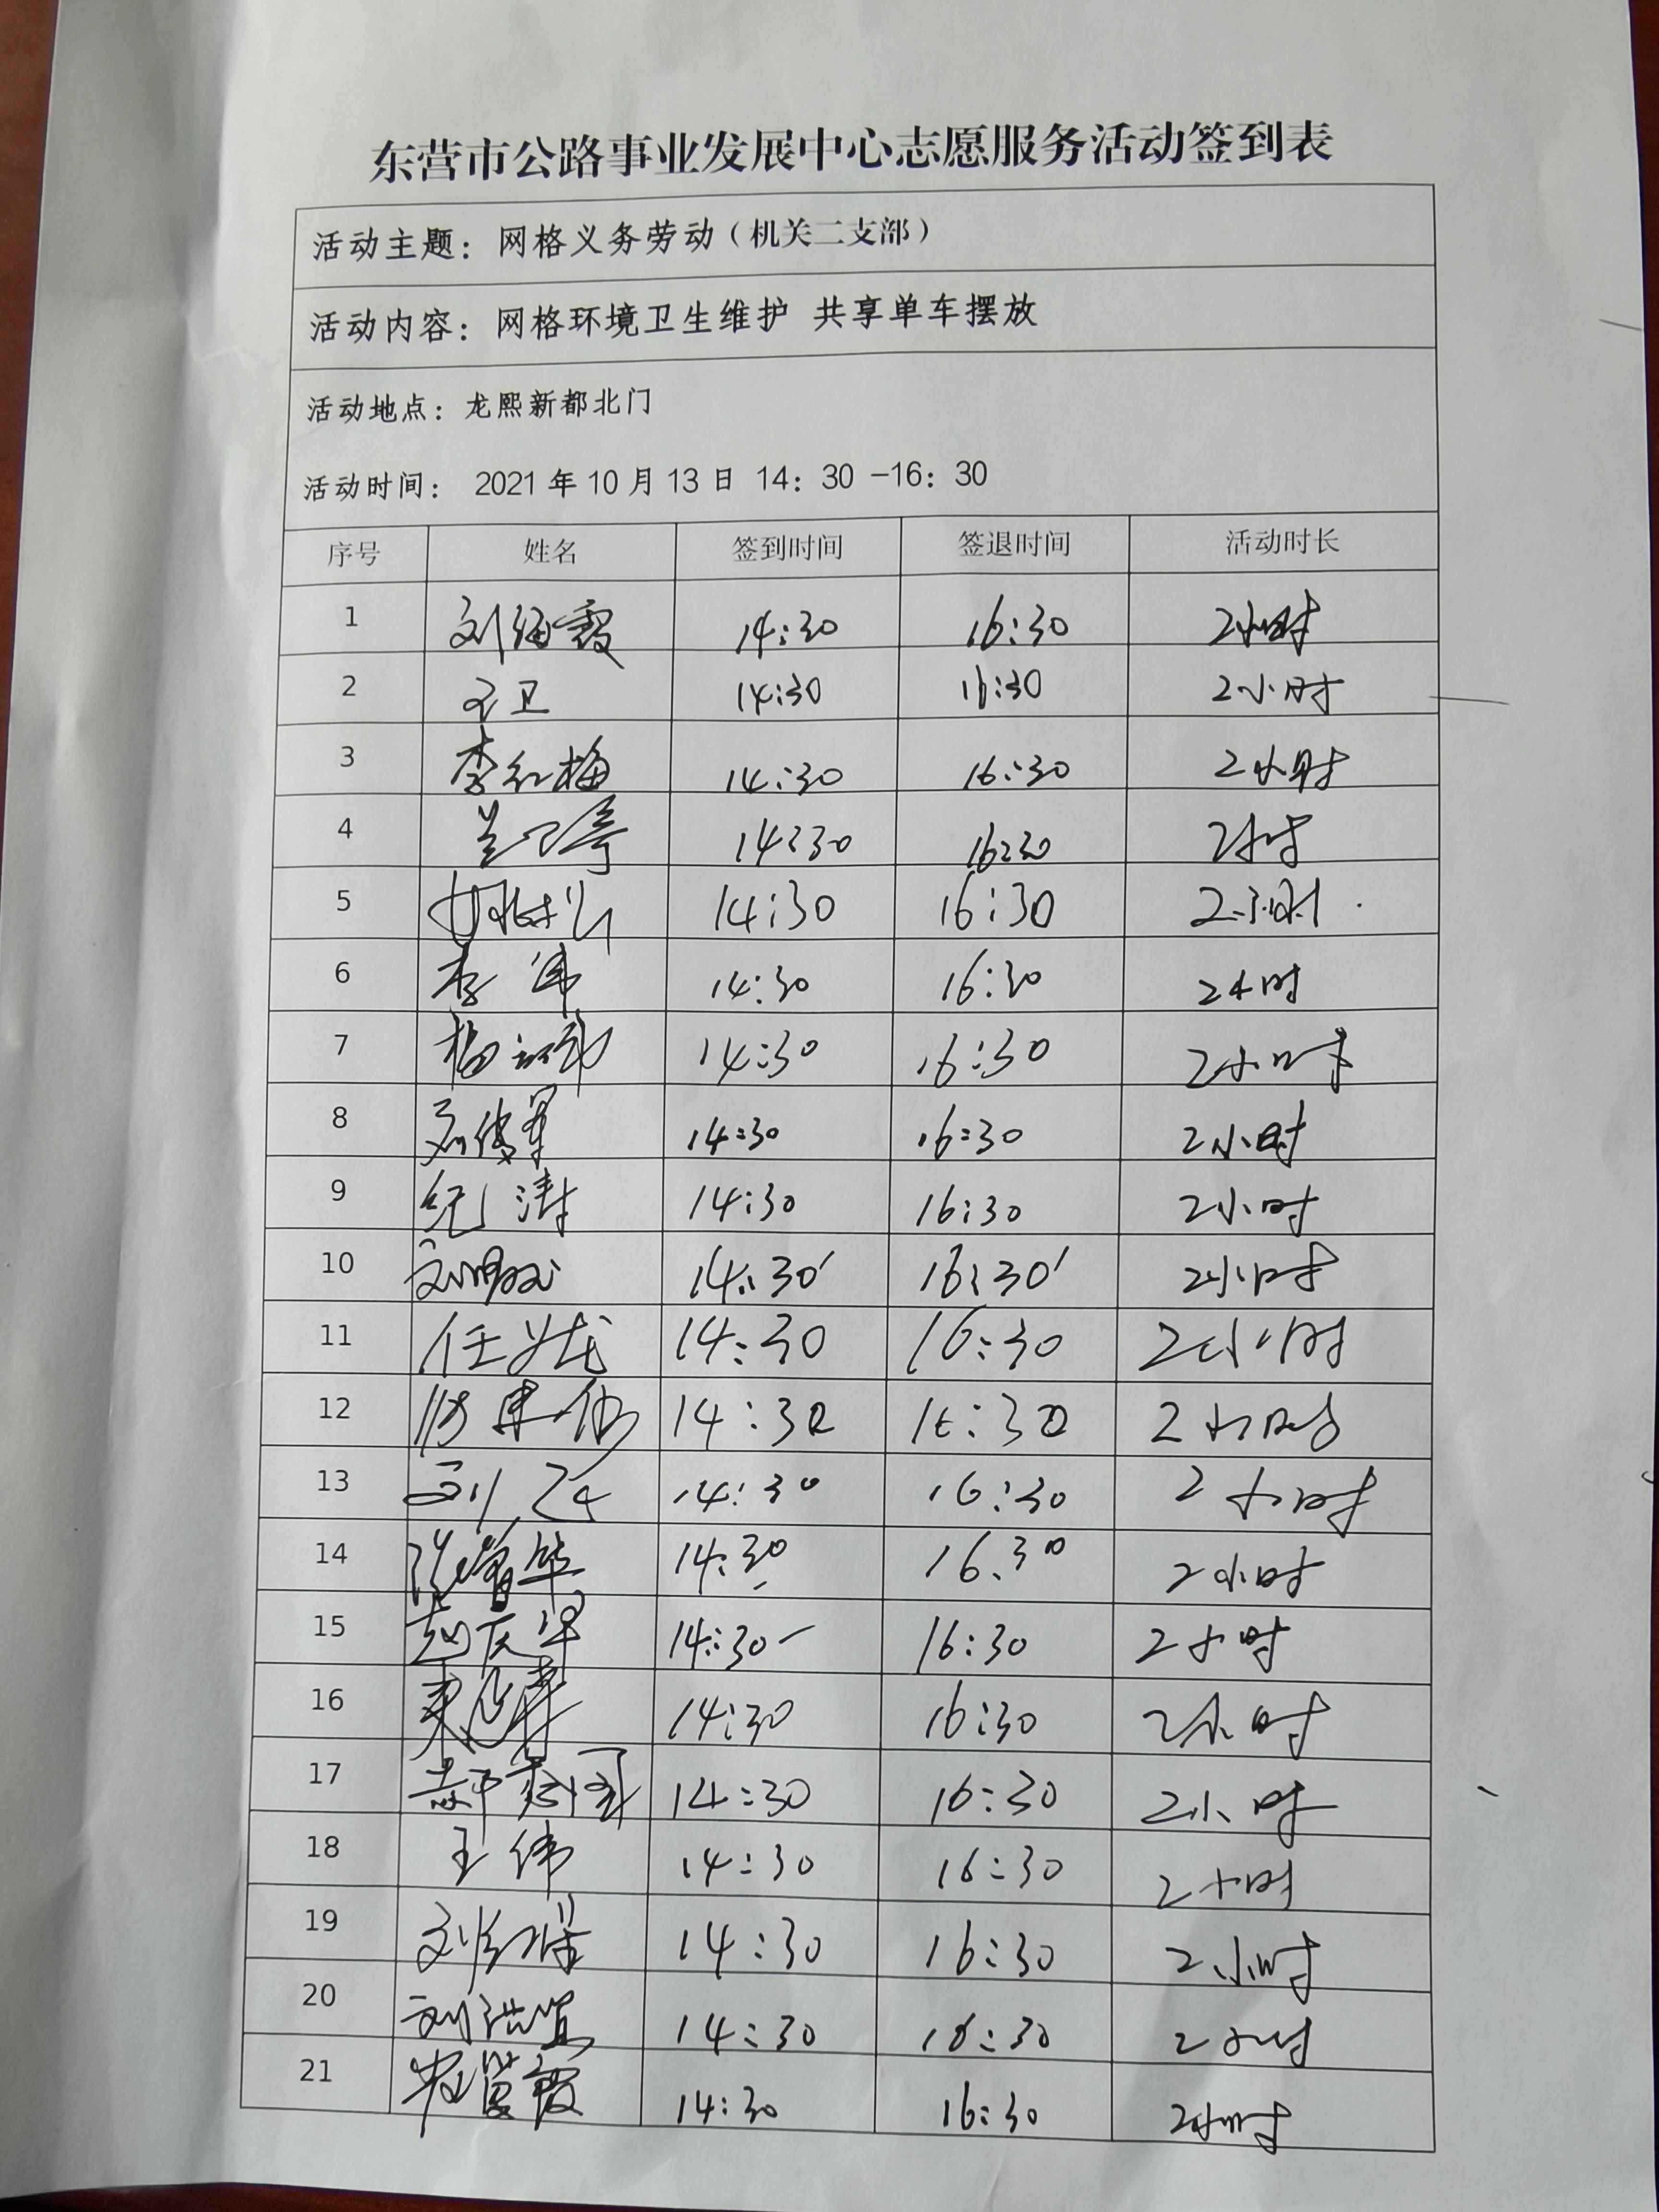 东营市公路事业发展中心志愿服务活动签到表
活动主题：网格义务劳动（机关二支部）
活动内容：网格环境卫生维护 共享单车摆放
活动地点：龙熙新都北门
活动时间： 2021年10月13日 14：30 -16：30
序号 姓名 签到时间 签退时间 活动时长
1 刘海霞 14:30 16:30 2小时
2 王卫 14:30 16:30 2小时
3 李红梅 14:30 16:30 2小时
4 14:30 16:30 2小时
5 14:30 16:30 2小时
6 李伟 14:30 16:30 2小时
7 14:30 16:30 2小时
8 14:30 16:30 2小时
9 纪涛 14:30 16:30 2小时
10 14:30 16:30 2小时
11 14:30 16:30 2小时
12 14:30 16:30 2小时
13 14:30 16:30 2小时
14 14:30 16:30 2小时
15 14:30 16:30 2小时
16 14:30 16:30 2小时
17 14:30 16:30 2小时
18 王伟 14:30 16:30 2小时
19 14:30 16:30 2小时
20 14:30 16:30 2小时
21 14:30 16:30 2小时